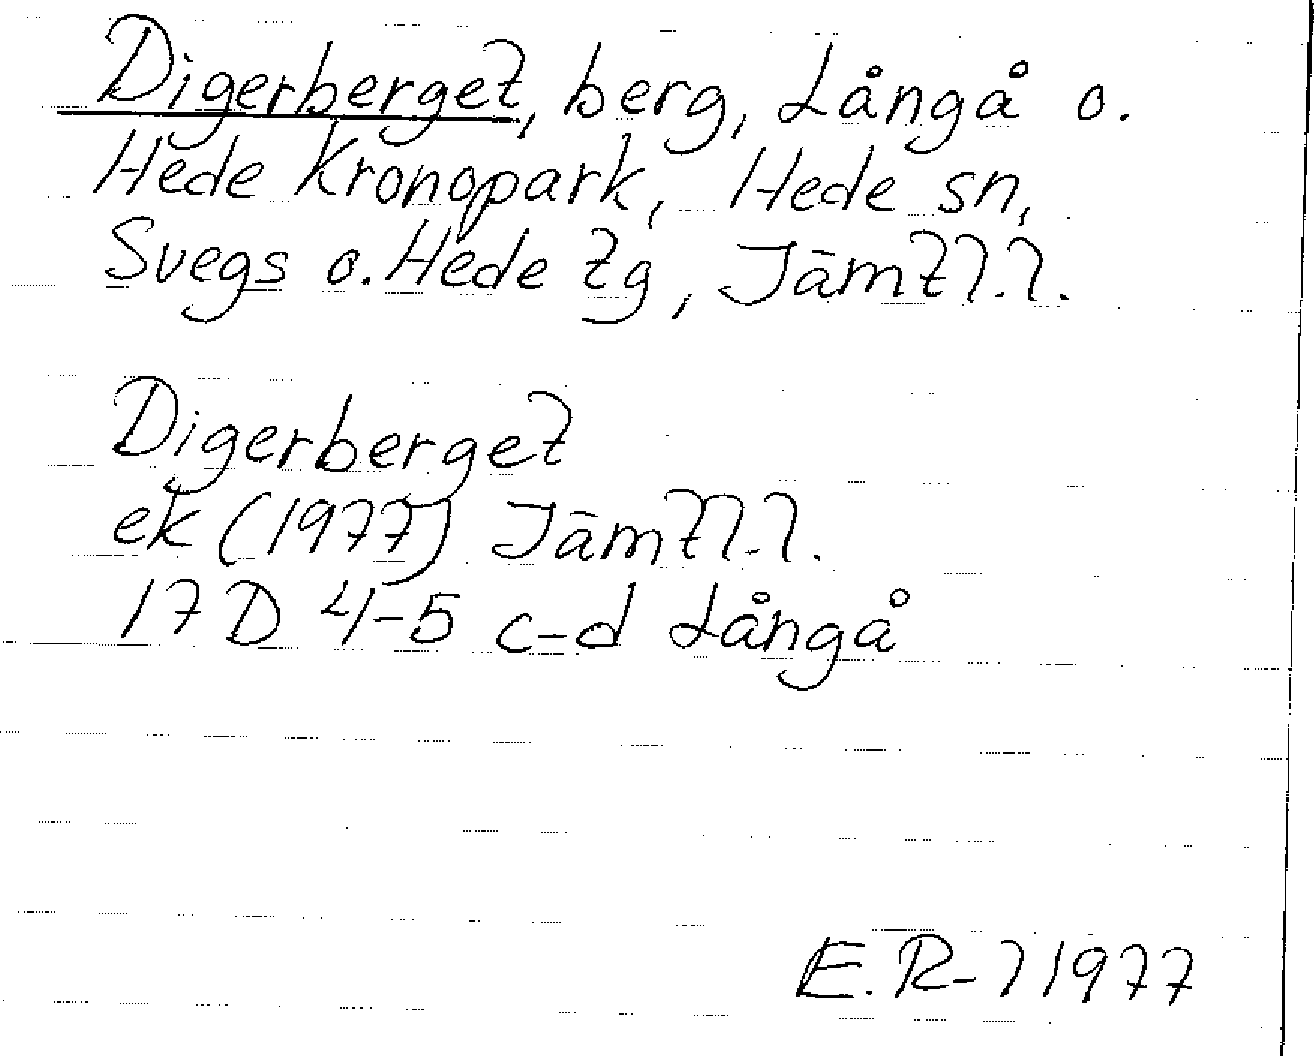 Digerberget, berg, Långå o.
Hede Kronopark, Hede sn,
Svegs o. Hede tg, Jämtl.l.
Digerberget
ek (1977) Jämtl.l.
17 D 4-5 c-d Långå
E. R-l 1977